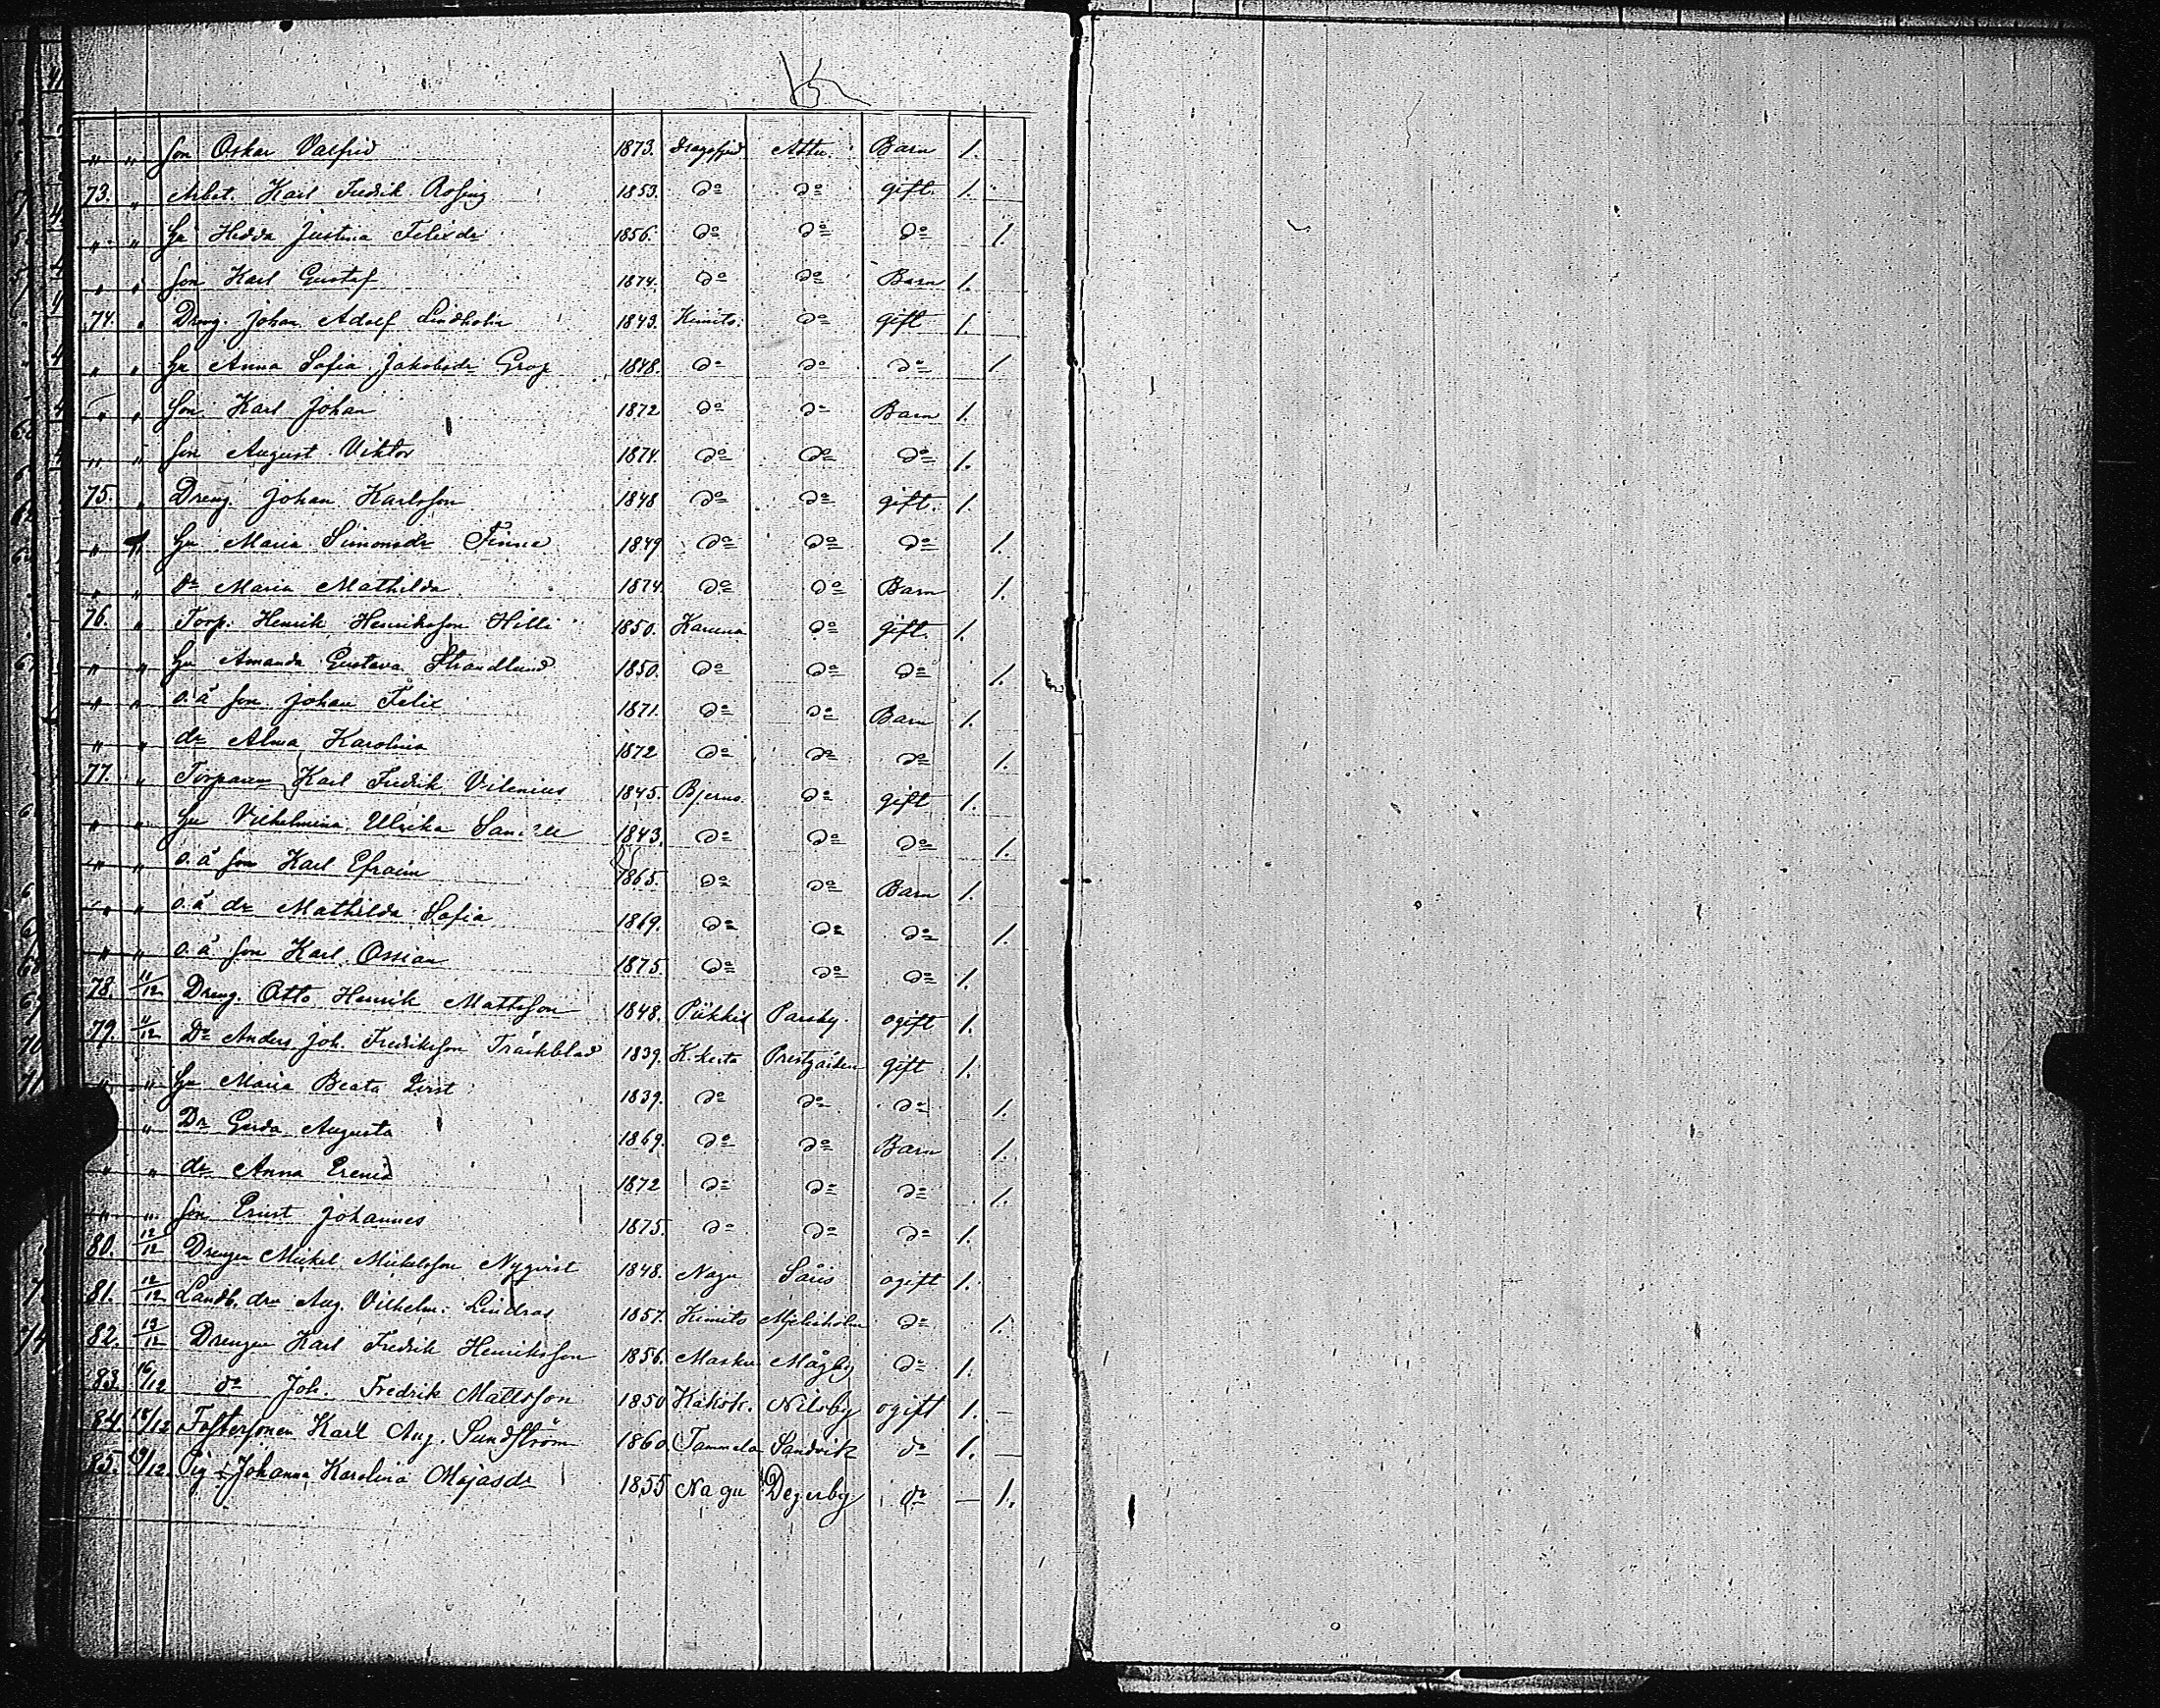 " " son Oskar Valfrid 1873. Dragsfjerd Attu. Barn 1.
73. " Arbet. Karl Fredrik Rosing 1853. Do Do gift. 1.
" " hu Hedda Justina Felixdr 1856. Do Do Do 1.
" " son Karl Gustaf 1874. Do Do Barn 1.
74. " Dreng. Johan Adolf Lindholm 1843. Kimito. Do gift 1.
" " hu Anna Sofia Jakobsdr Grop 1848. Do Do Do 1
" " son Karl Johan 1872 Do Do Barn 1.
" " son August Viktor 1874. Do Do Do 1.
75. " Dreng. Johan Karlsson 1848 Do Do gift. 1.
" " hu Maria Simonsdr Finne 1849 Do Do Do 1.
" " dr Maria Mathilda 1874. Do Do Barn 1.
76. " Torp. Henrik Henriksson Hilli 1850. Karuna Do gift. 1.
" " hu Amanda Gustava Strandlund 1850. Do Do Do 1.
" " o.ä son Johan Felix 1871. Do Do Barn 1.
" " dr Alma Karolina 1872 Do Do Do 1.
77. " Torparen Karl Fredrik Vilenius 1845. Bjerno. Do gift 1.
" " hu Vilhelmina Ulrika 1843. Do Do Do 1.
" " o.ä son Karl Efraim 1865. Do Do Barn 1.
" " o.ä dr Mathilda Sofia 1869. Do Do Do 1.
" " o.ä son Karl Ossian 1875. Do Do Do 1.
78. 11/12 Dreng. Otto Henrik Mattsson 1848. Piikkis Parsby. ogift 1.
79. 11/12 Do Anders Joh. Fredriksson Träskblad 1839. K. Prestgården gift 1.
" " hu Maria Beata 1839. Do Do Do 1.
" Dr Gerda Augusta 1869. Do Do Barn 1.
" " dr Anna Irenia 1872 Do Do Do 1.
" " son Ernst Johannes 1875. Do Do Do 1.
80. 12/12 Drengen Mickel Mickelsson Nyqvist 1848. Nagu Såris ogift 1.
81. 12/12 Landb. dr Aug. Vilhelm: Lindros 1857. Kimito Mjelisholm Do 1.
82. 13/12 Drengen Karl Fredrik Henriksson 1856. Masku Mågby Do 1.
83. 16/12 do Joh. Fredrik Mattsson 1850 Kakok. Nilsby ogift 1. —
84. 18/12 Fostersonen Karl Aug. Sundström 1860. Tammela Sandvik do 1. —
85. 19/12 Pig. Johanna Karolina Majasdr 1855 Nagu Degerby do — 1.